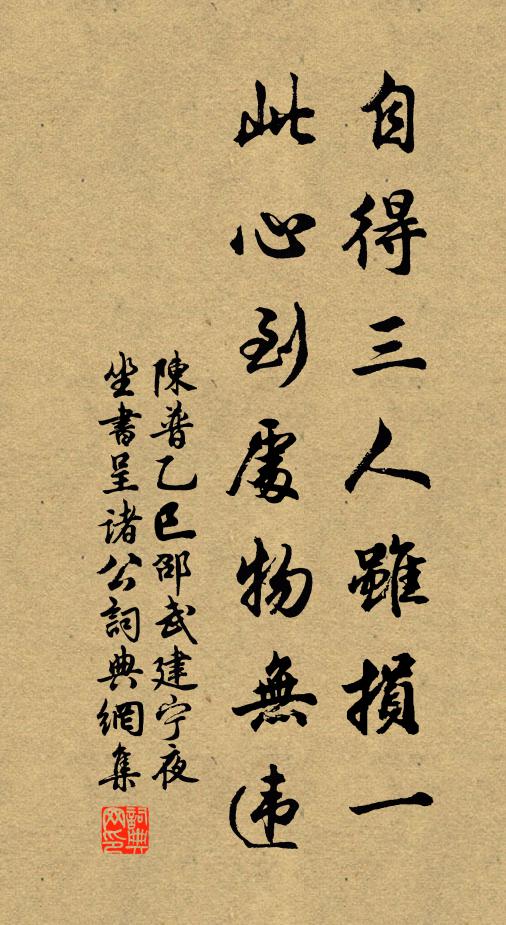 自得三人雖損一
此心到處物無违
陳普乙巳邵武建宁夜
坐書呈诸公詞典網集
詞典网印